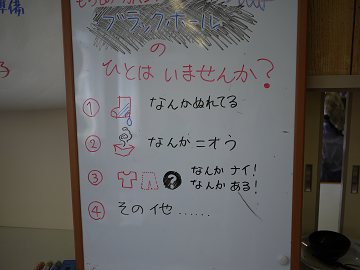 ブラックホール
の
ひとは いませんか?
① なんかぬれてる
② なんか ニオう
③ ? なんか ナイ!
なんか ある!
④ その他……